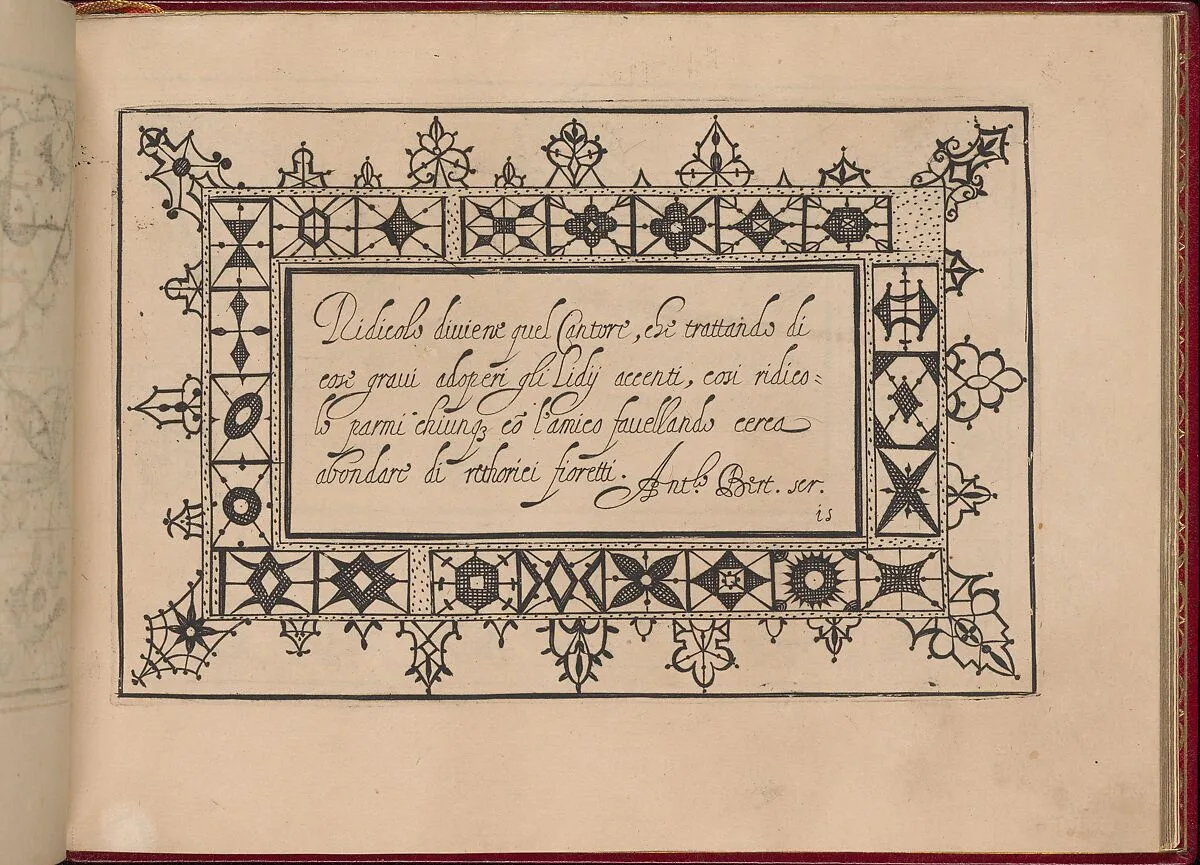 Ridicolo diuiene quel Cantore, che trattando di
cose graui adoperi gli Lidij accenti, cosi ridico=
lo parmi chiunq3 cō l'amico fauellando cerca
abondare di rethorici fioretti. Ant.º Bert. scr.
15